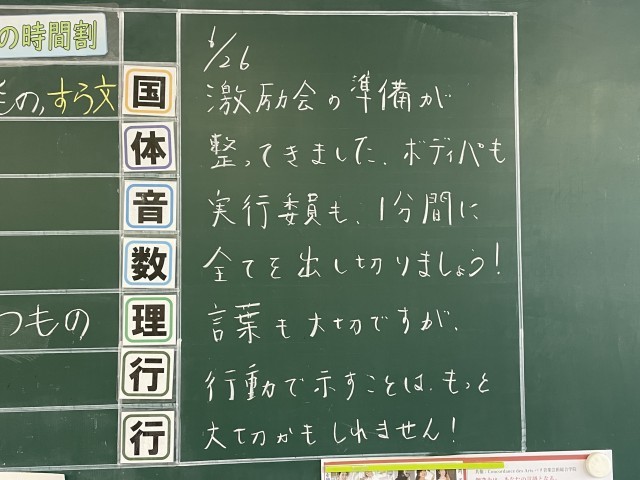 の時間割
6/26
もの,すら文
国
激励会の準備が
体
整ってきました。ボディパも
音
実行委員も、1分間に
数
全てを出し切りましょう!
つもの
理
言葉も大切ですが、
行
行動で示すことは、もっと
行
大切かもしれません!